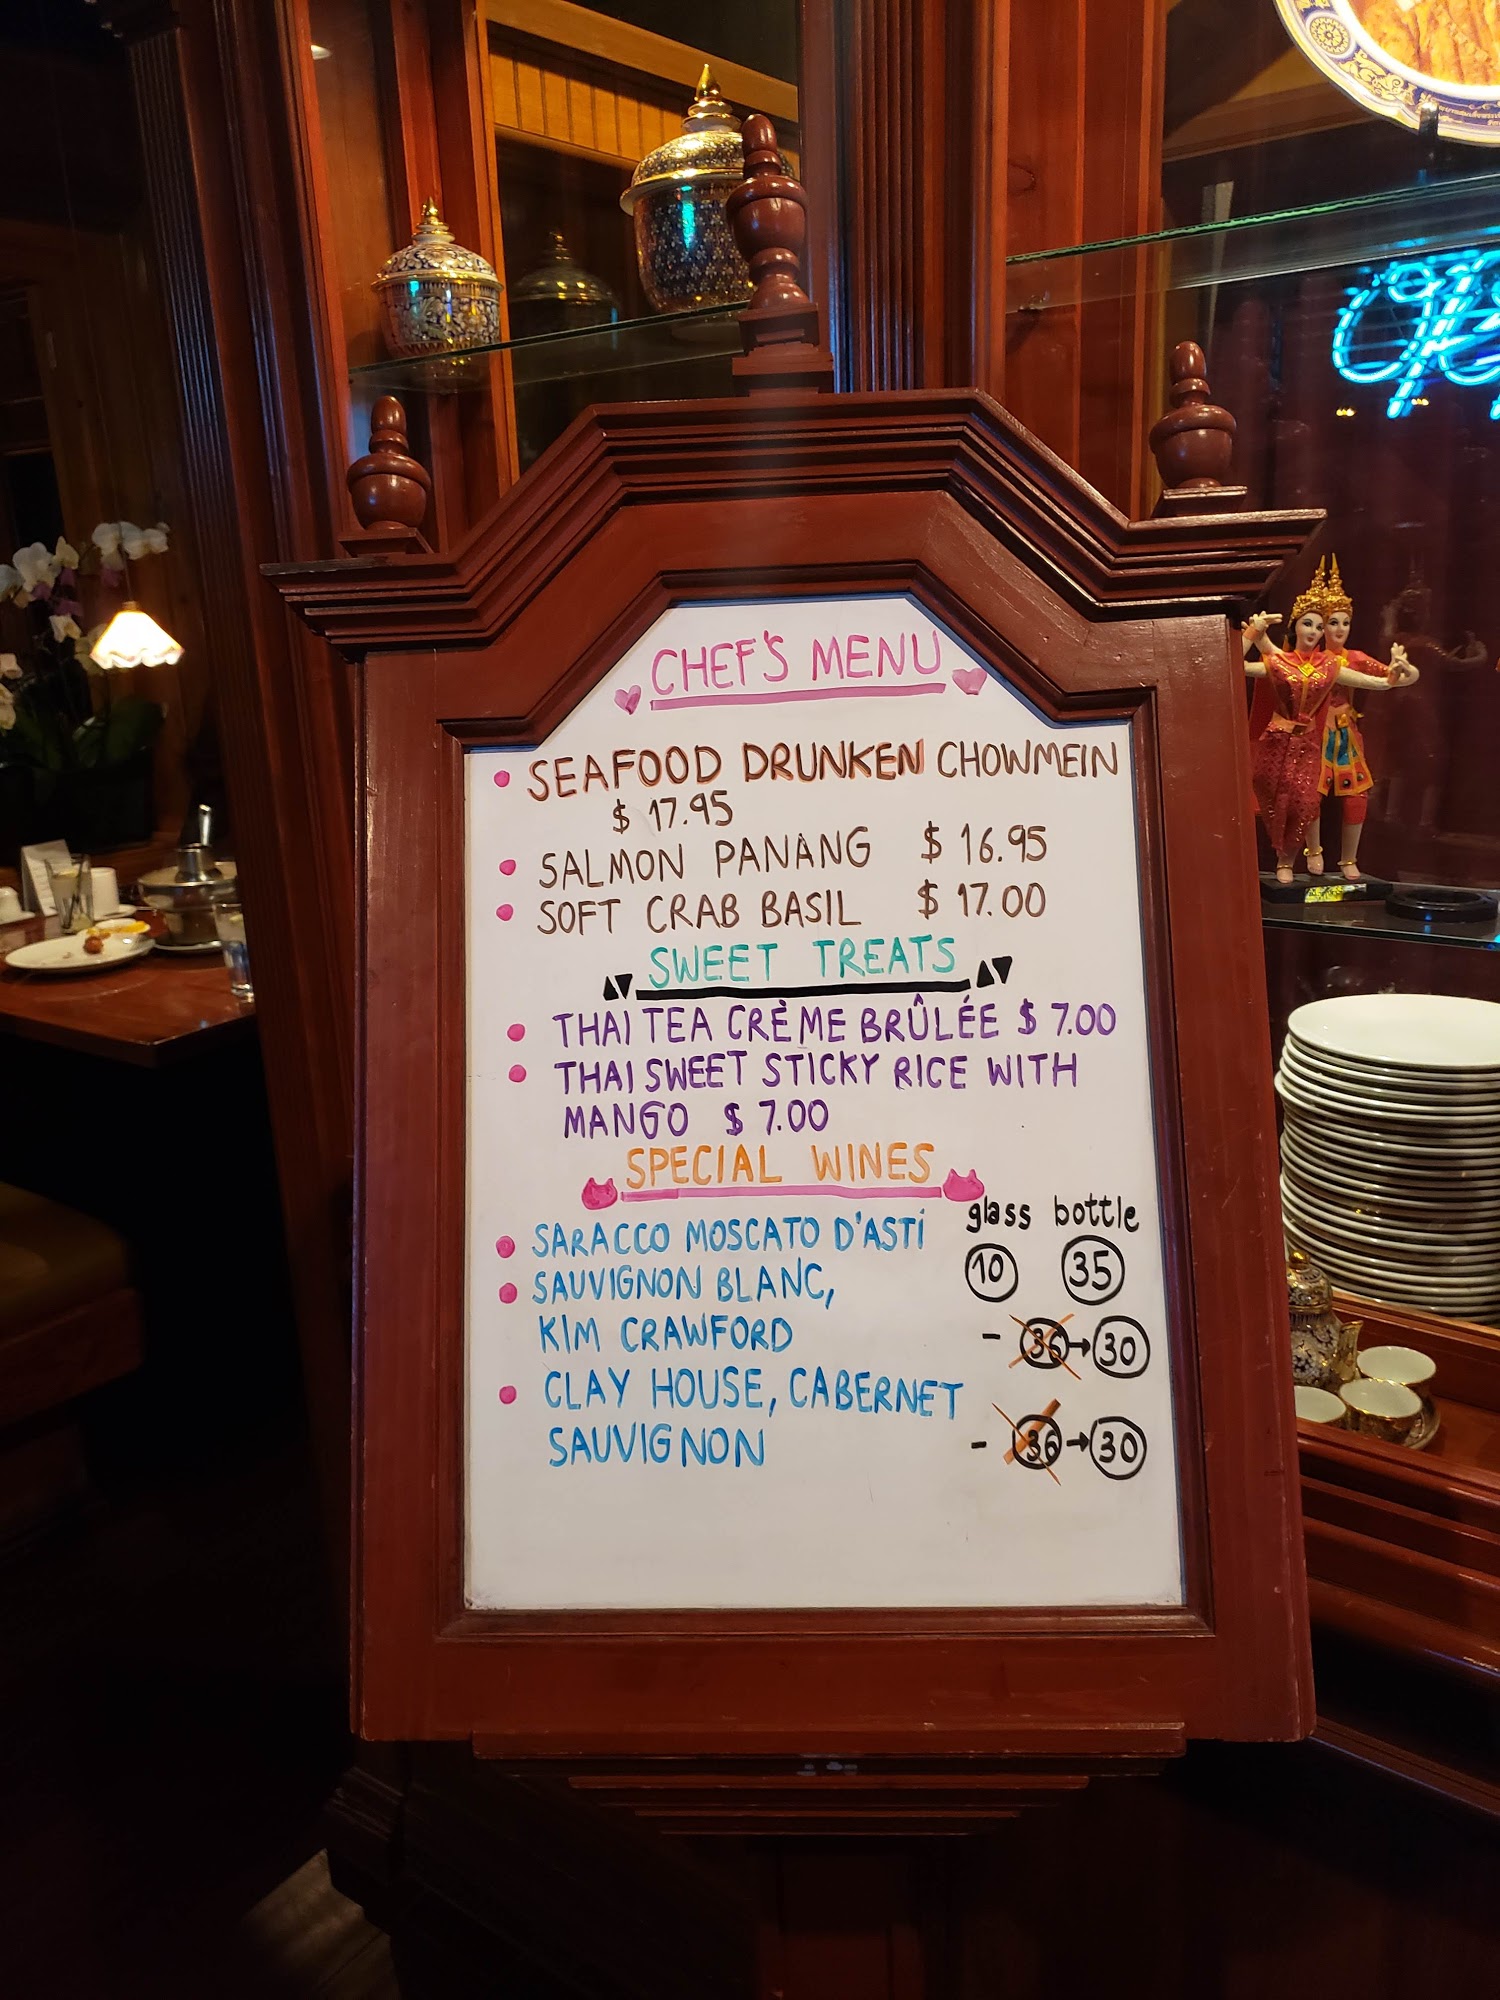 CHEF'S MENU
SEAFOOD DRUNKEN CHOWMEIN
$ 17.95
SALMON PANANG $ 16.95
SOFT CRAB BASIL $ 17.00
SWEET TREATS
THAI TEA CRÈME BRÛLÉE $ 7.00
THAI SWEET STICKY RICE WITH
MANGO $ 7.00
SPECIAL WINES
glass bottle
SARACCO MOSCATO D'ASTI 10 35
SAUVIGNON BLANC,
KIM CRAWFORD - 36 → 30
CLAY HOUSE, CABERNET
SAUVIGNON - 36 → 30